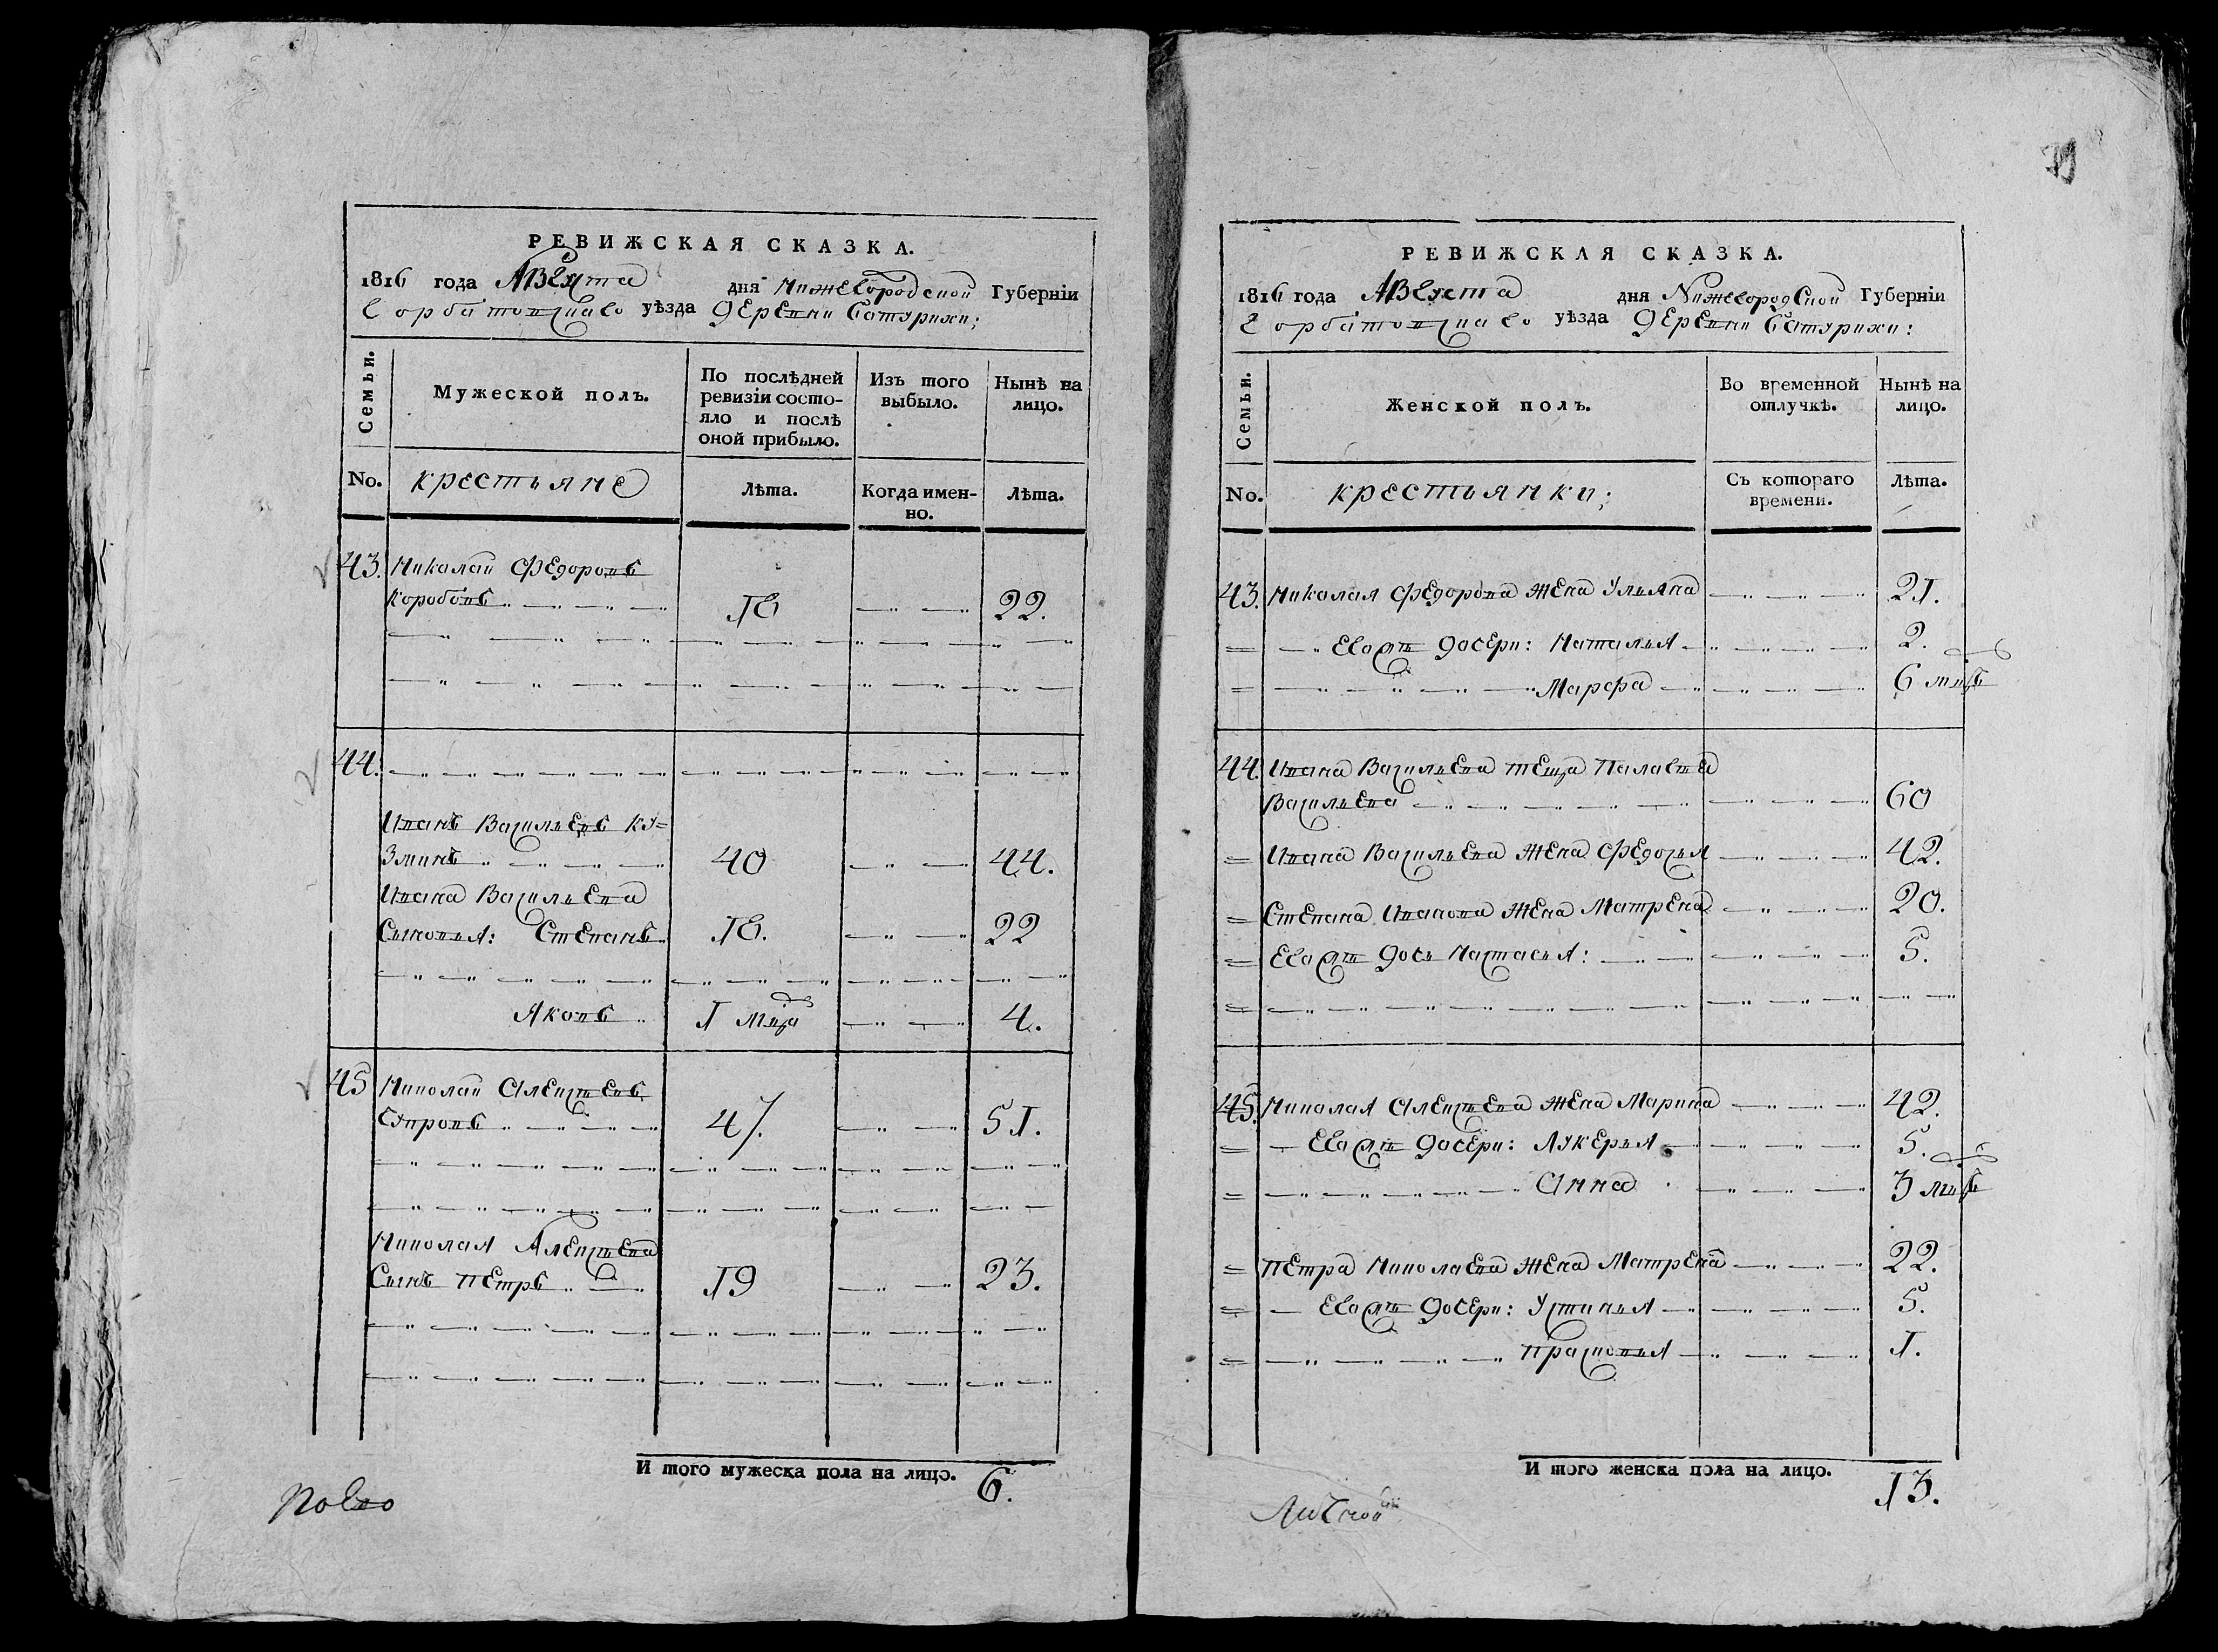 РЕВИЖСКАЯ СКАЗКА.
1816 года Августа дня Нижегородской Губерніи
Горбатовскаго уѣзда деревни Батурихи;
Семьи.
Мужеской полъ.
По послѣдней ревизіи состояло и послѣ оной прибыло.
Изъ того выбыло.
Нынѣ на лицо.
No.
крестьяне
Лѣта.
Когда именно.
Лѣта.
43. Николай Федоровъ
Коробовъ 18 22.
44.
Иванъ Васильевъ Ку=
зминъ 40 44.
Ивана Васильева
Сыновья: Степанъ 18. 22
Яковъ 1 мца 4.
45 Николай Алексѣевъ
47. 51.
Николая Алексѣева
Сынъ Петръ 19 23.
И того мужеска пола на лицо. 6.
РЕВИЖСКАЯ СКАЗКА.
1816 года Августа дня Нижегородской Губерніи
Горбатовскаго уѣзда деревни Батурихи:
Семьи.
Женской полъ.
Во временной отлучкѣ.
Нынѣ на лицо.
No.
крестьянки;
Съ котораго времени.
Лѣта.
43. Николая Федорова жена Ульяна 21.
Егожъ дочери: Наталья 2.
Марфа 6 мцъ
44. Ивана Васильева теща Палагея
Васильева 60
Ивана Васильева жена Федосья 42.
Степана Иванова жена Матрена 20.
Егожъ дочь Настасья: 5.
45. Николая Алексѣева жена Марина 42.
Егожъ дочери: Лукерья 5.
Анна 3 мцъ
Петра Николаева жена Матрена 22.
Егожъ дочери: Устинья 5.
Прасковья 1.
И того женска пола на лицо. 13.